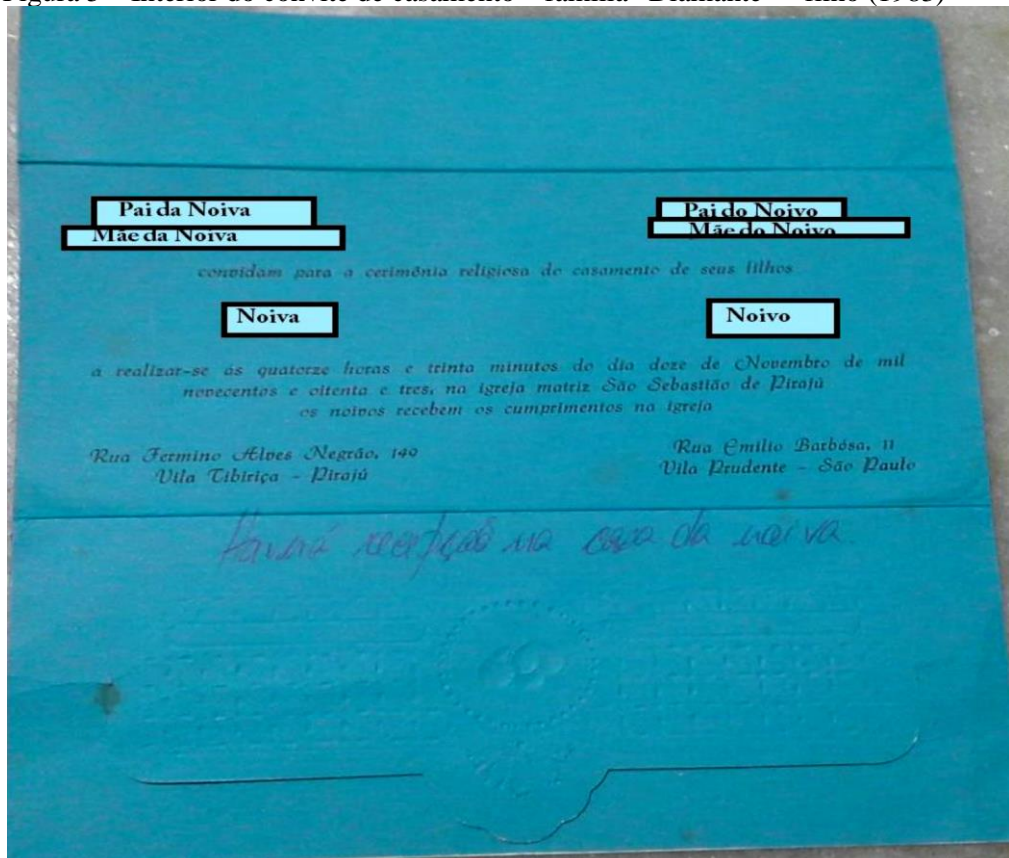 Pai da Noiva
Mãe da Noiva
Pai do Noivo
Mãe do Noivo
convidam para a cerimônia religiosa do casamento de seus filhos
Noiva
Noivo
a realizar-se ás quatorze horas e trinta minutos do dia doze de Novembro de mil
novecentos e oitenta e tres, na igreja matriz São Sebastião de Pirajú
os noivos recebem os cumprimentos na igreja
Rua Fermino Alves Negrão, 149
Vila Tibiriça - Pirajú
Rua Emilio Barbósa, 11
Vila Prudente - São Paulo
Haverá recepção na casa da noiva